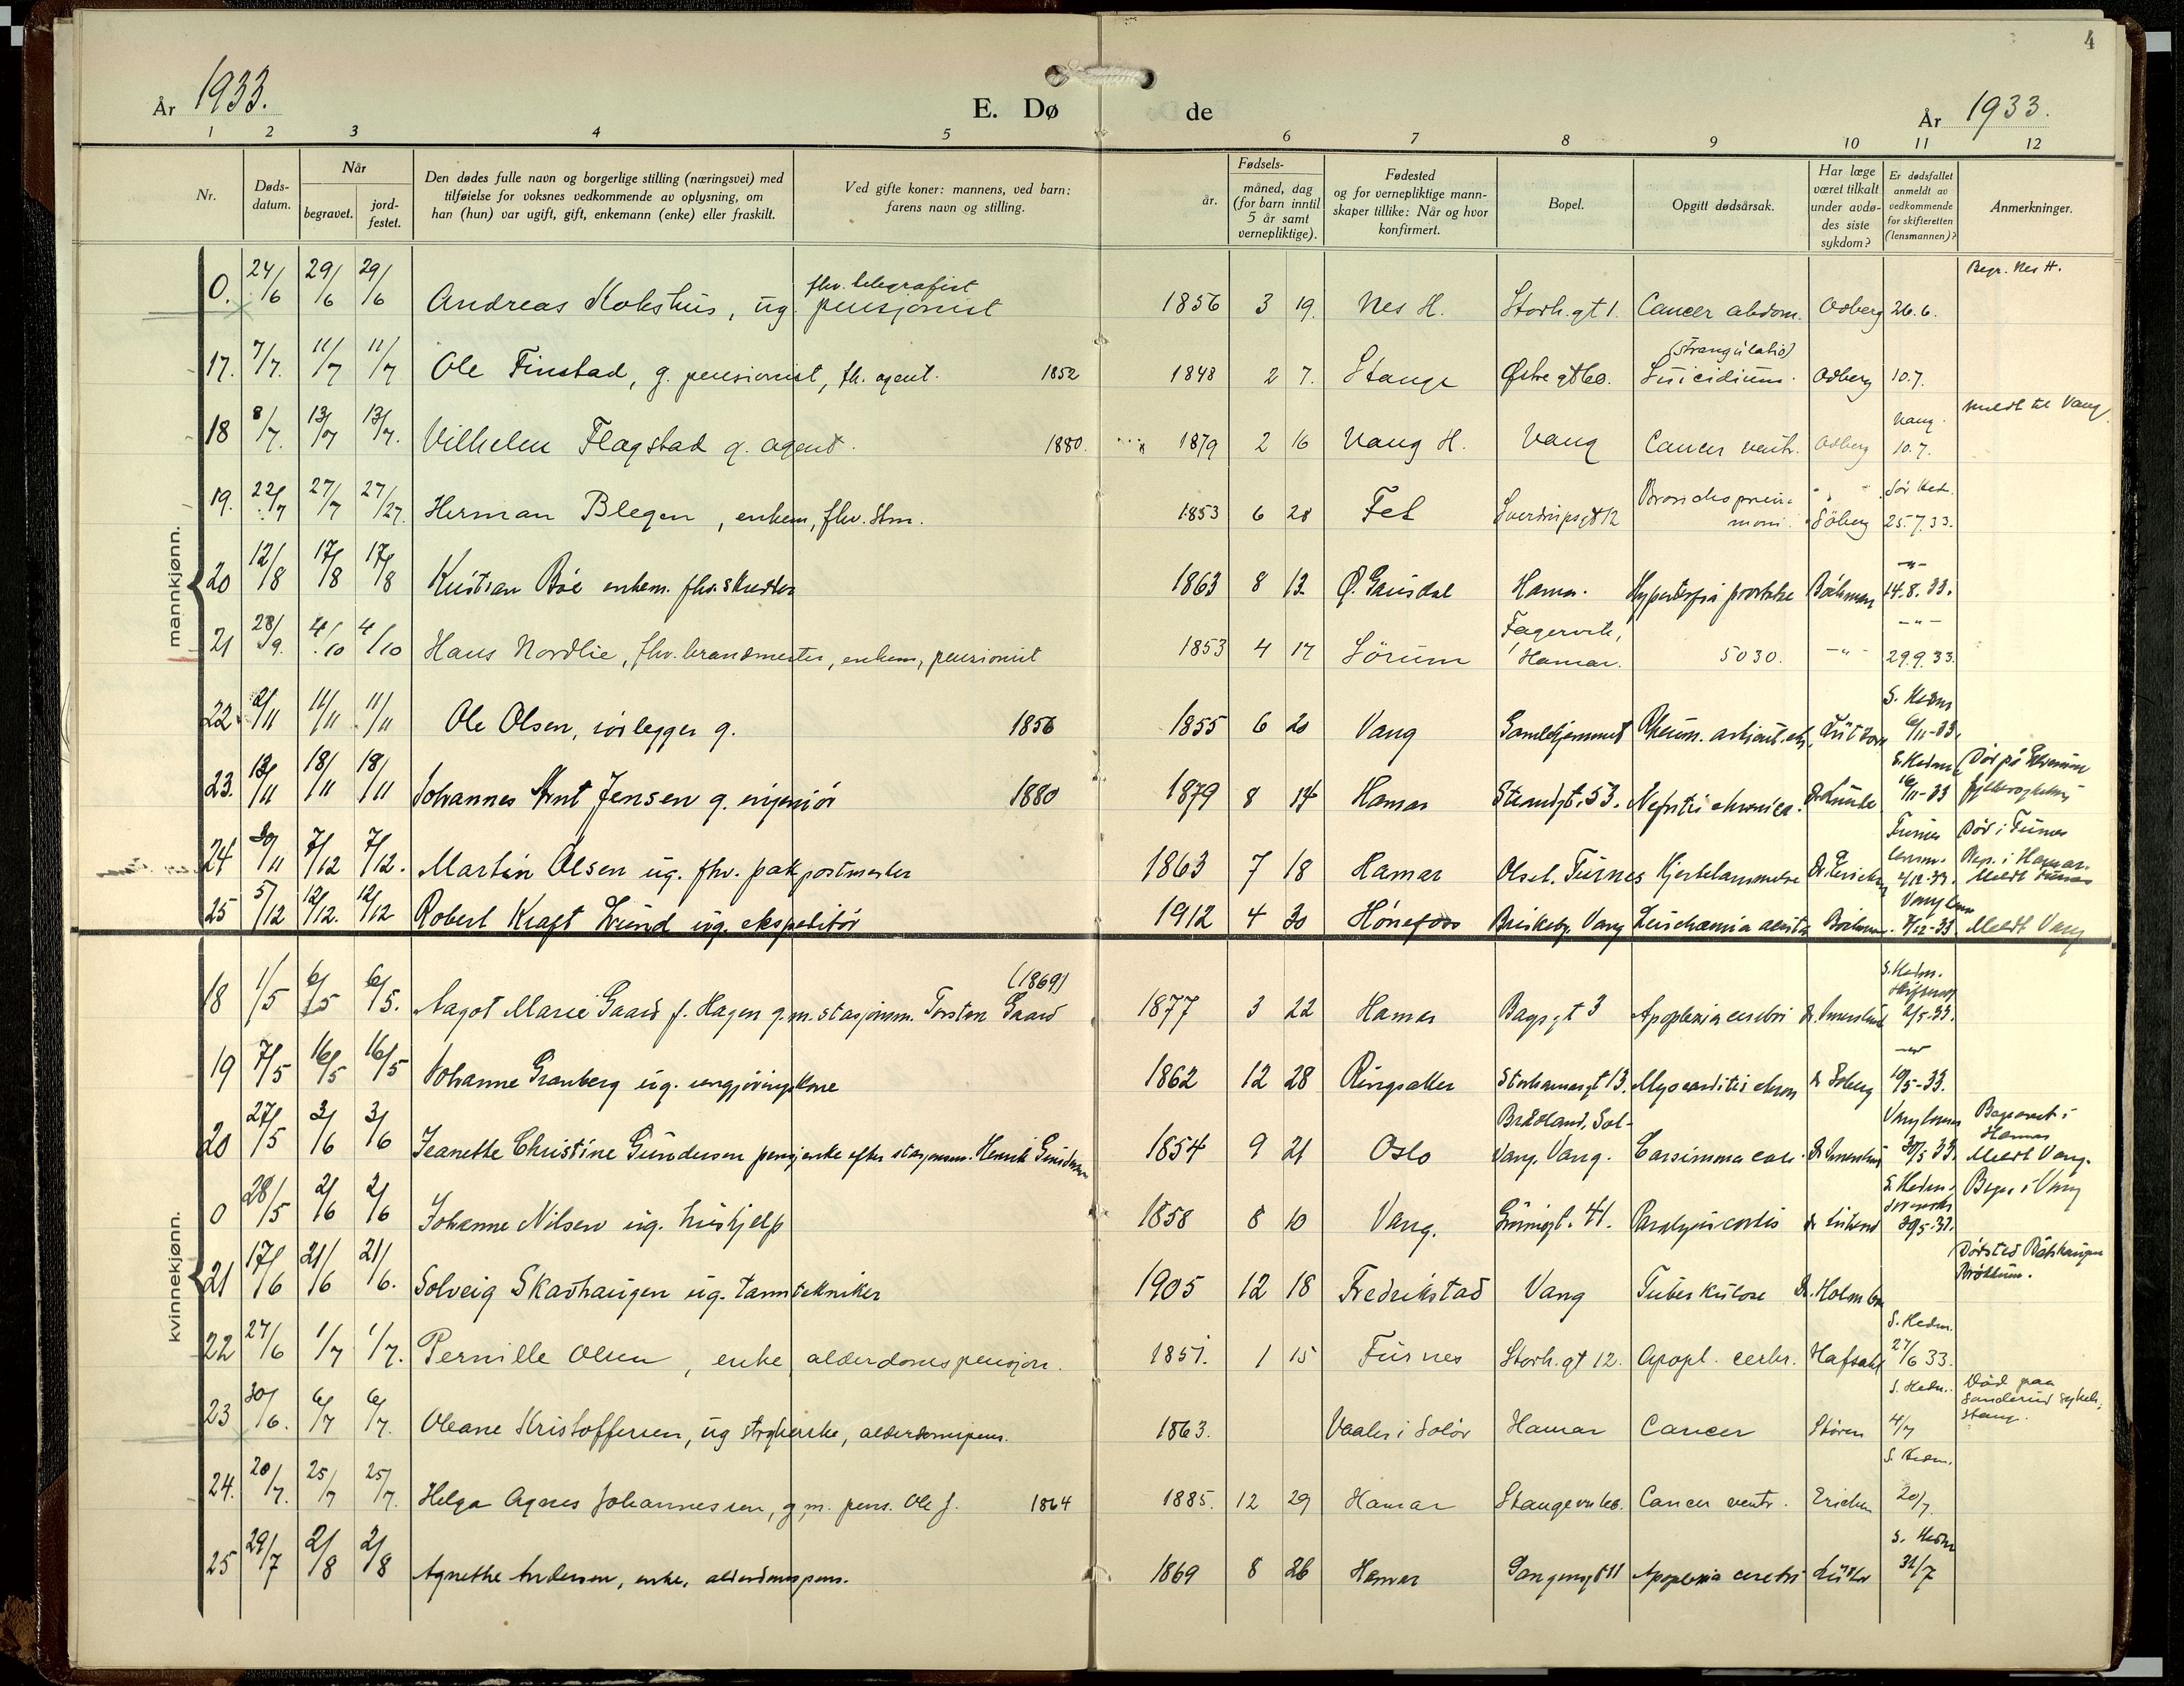 4
År 1933. E. Dø de År 1933.
1 2 3 4 5 6 7 8 9 10 11 12
Nr. Døds-datum. Når begravet. jord-festet. Den dødes fulle navn og borgerlige stilling (næringsvei) med tilføielse for voksnes vedkommende av oplysning, om han (hun) var ugift, gift, enkemann (enke) eller fraskilt. Ved gifte koner: mannens, ved barn: farens navn og stilling. Fødsels- år. måned, dag (for barn inntil 5 år samt vernepliktige). Fødested og for vernepliktige mann-skaper tillike: Når og hvor konfirmert. Bopel. Opgitt dødsårsak. Har læge været tilkalt under avdø-des siste sykdom? Er dødsfallet anmeldt av vedkommende for skifteretten (lensmannen)? Anmerkninger.
mannkjønn.
0. 24/6 29/6 29/6 Andreas Kokshus, ug. fhv. telegrafist pensjonist 1856 3 19. Nes H. Storh.gt 1. Cancer abdom. Odberg 26.6. Begr. Nes H.
17. 7/7. 11/7 11/7 Ole Finstad, g. pensionist, fh. agent. 1852 1848 2 7. Stange Østre gt 60. (Strangulatio) Suicidium. Odberg 10.7.
18 8/7. 13/7 13/7. Vilhelm Flagstad g. agent. 1880. 1879 2 16 Vang H. Vang Cancer ventr. Odberg Vang. 10.7. Meldt til Vang
19. 22/7 27/7 27/27. Herman Blegen, enkem, fhv. 1853 6 28 Fet Sverdrupsgt 12 Söberg 25.7.33.
20 12/8 17/8 17/8 Kristian Böe enkem. fhv. 1863 8 13 Ø. Gausdal Hamar. Hypertrofia prostatae Böckman -"- 14.8.33.
21 28/9. 4/10 4/10 Hans Nordlie, fhv. brandmester, enkem, pensionist 1853 4 17 Sörum Fagervik, Hamar. 5030. -"- -"- 29.9.33.
22. 2/11 11/11 11/11 Ole Olsen, rørlegger g. 1856 1855 6 20 Vang Gamlehjemmet S. Hedm 6/11-33.
23. 13/11 18/11 18/11 Johannes Arnt Jensen g. ingeniör 1880 1879 8 14 Hamar Strandgt. 53. Nefritis chronica. S. Hedm 16/11-33 Död på
24 30/11 7/12 7/12. Martin Olsen ug. fhv. pakpostmester 1863 7 18 Hamar Olset. Furnes Hjertelammelse Furnes lensm. Död i Furnes Begr. i Hamar. Meldt Furnes
25 5/12 12/12. 12/12 Robert Kraft Lund ug. ekspeditör 1912 4 30 Hönefoss Briskeby, Vang Vang Meldt Vang
kvinnekjønn.
18 1/5 6/5 6/5. Aagot Marie Gaard f. Hagen g.m. stasjonsm. Torsten Gaard (1869) 1877 3 22 Hamar Bagsgt 3 Apoplexia cerebri S. Hedm. 2/5-33.
19 7/5 16/5 16/5 Johanne Granberg ug. rengjöringskone 1862 12 28 Ringsaker Storhamargt 13. Myocarditis chron 10/5-33.
20 27/5 3/6 3/6 Jeanette Christine Gundersen pensj.enke efter stasjonsm. Henrik Gundersen 1854 9 21 Oslo Vang. Vang. 30/5 33. Begravet i Hamar Meldt Vang.
0 28/5 2/6 2/6 Johanne Nilsen ug. hushjelp 1858 8 10 Vang. Grönnegt. 41. Paralysis cordis S. Hedm. 30/5-33. Begr. i Vang
21 17/6 21/6 21/6. Solveig Skavhaugen ug. tanntekniker 1905 12 18 Fredrikstad Vang Tuberkulose Dr. Holmboe Dödsted Brøttum.
22 27/6 1/7 1/7. Pernille Olsen, enke, alderdomspensjon. 1851. 1 15 Furnes Storh.gt 12. Apopl. cerebr. Hafsahl S. Hedm. 27/6 33.
23 30/6. 6/7 6/7. Oleane Kristoffersen, ug strykerske, alderdomspens. 1863. Vaaler i Solör Hamar Cancer Stören S. Hedm. 4/7 Död paa Sanderud sykeh. Stange.
24. 20/7. 25/7 25/7. Helga Agnes Johannessen, g.m. pens. Ole J. 1864 1885. 12 29 Hamar Cancer ventr. Erichsen S. Hedm. 20/7.
25 29/7 2/8 2/8 Agnethe Andersen, enke, alderdomspens. 1869 8 26 Hamar Apoplexia cerebri S. Hedm 31/7